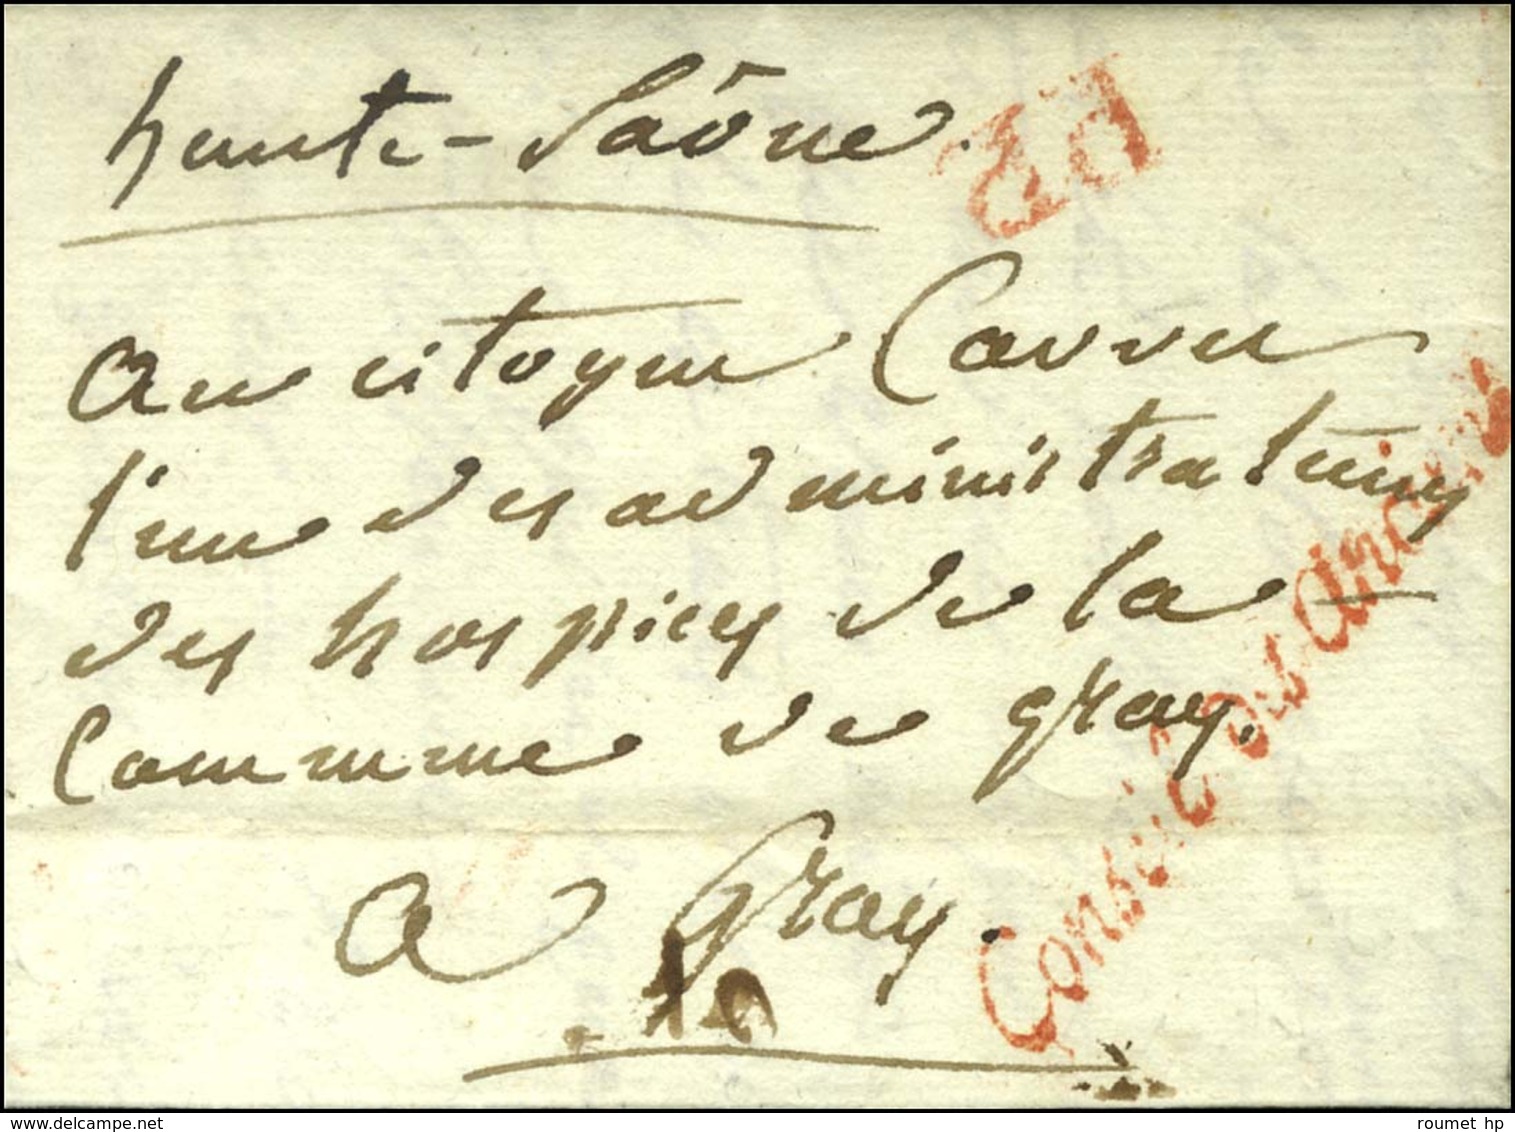 haute-Saône.
P.P.
Au citoyen
l'un des administrateurs
des hospices de la
Commune de gray.
a Gray.
Conseil des Anciens
roumet hp
www.delcampe.net